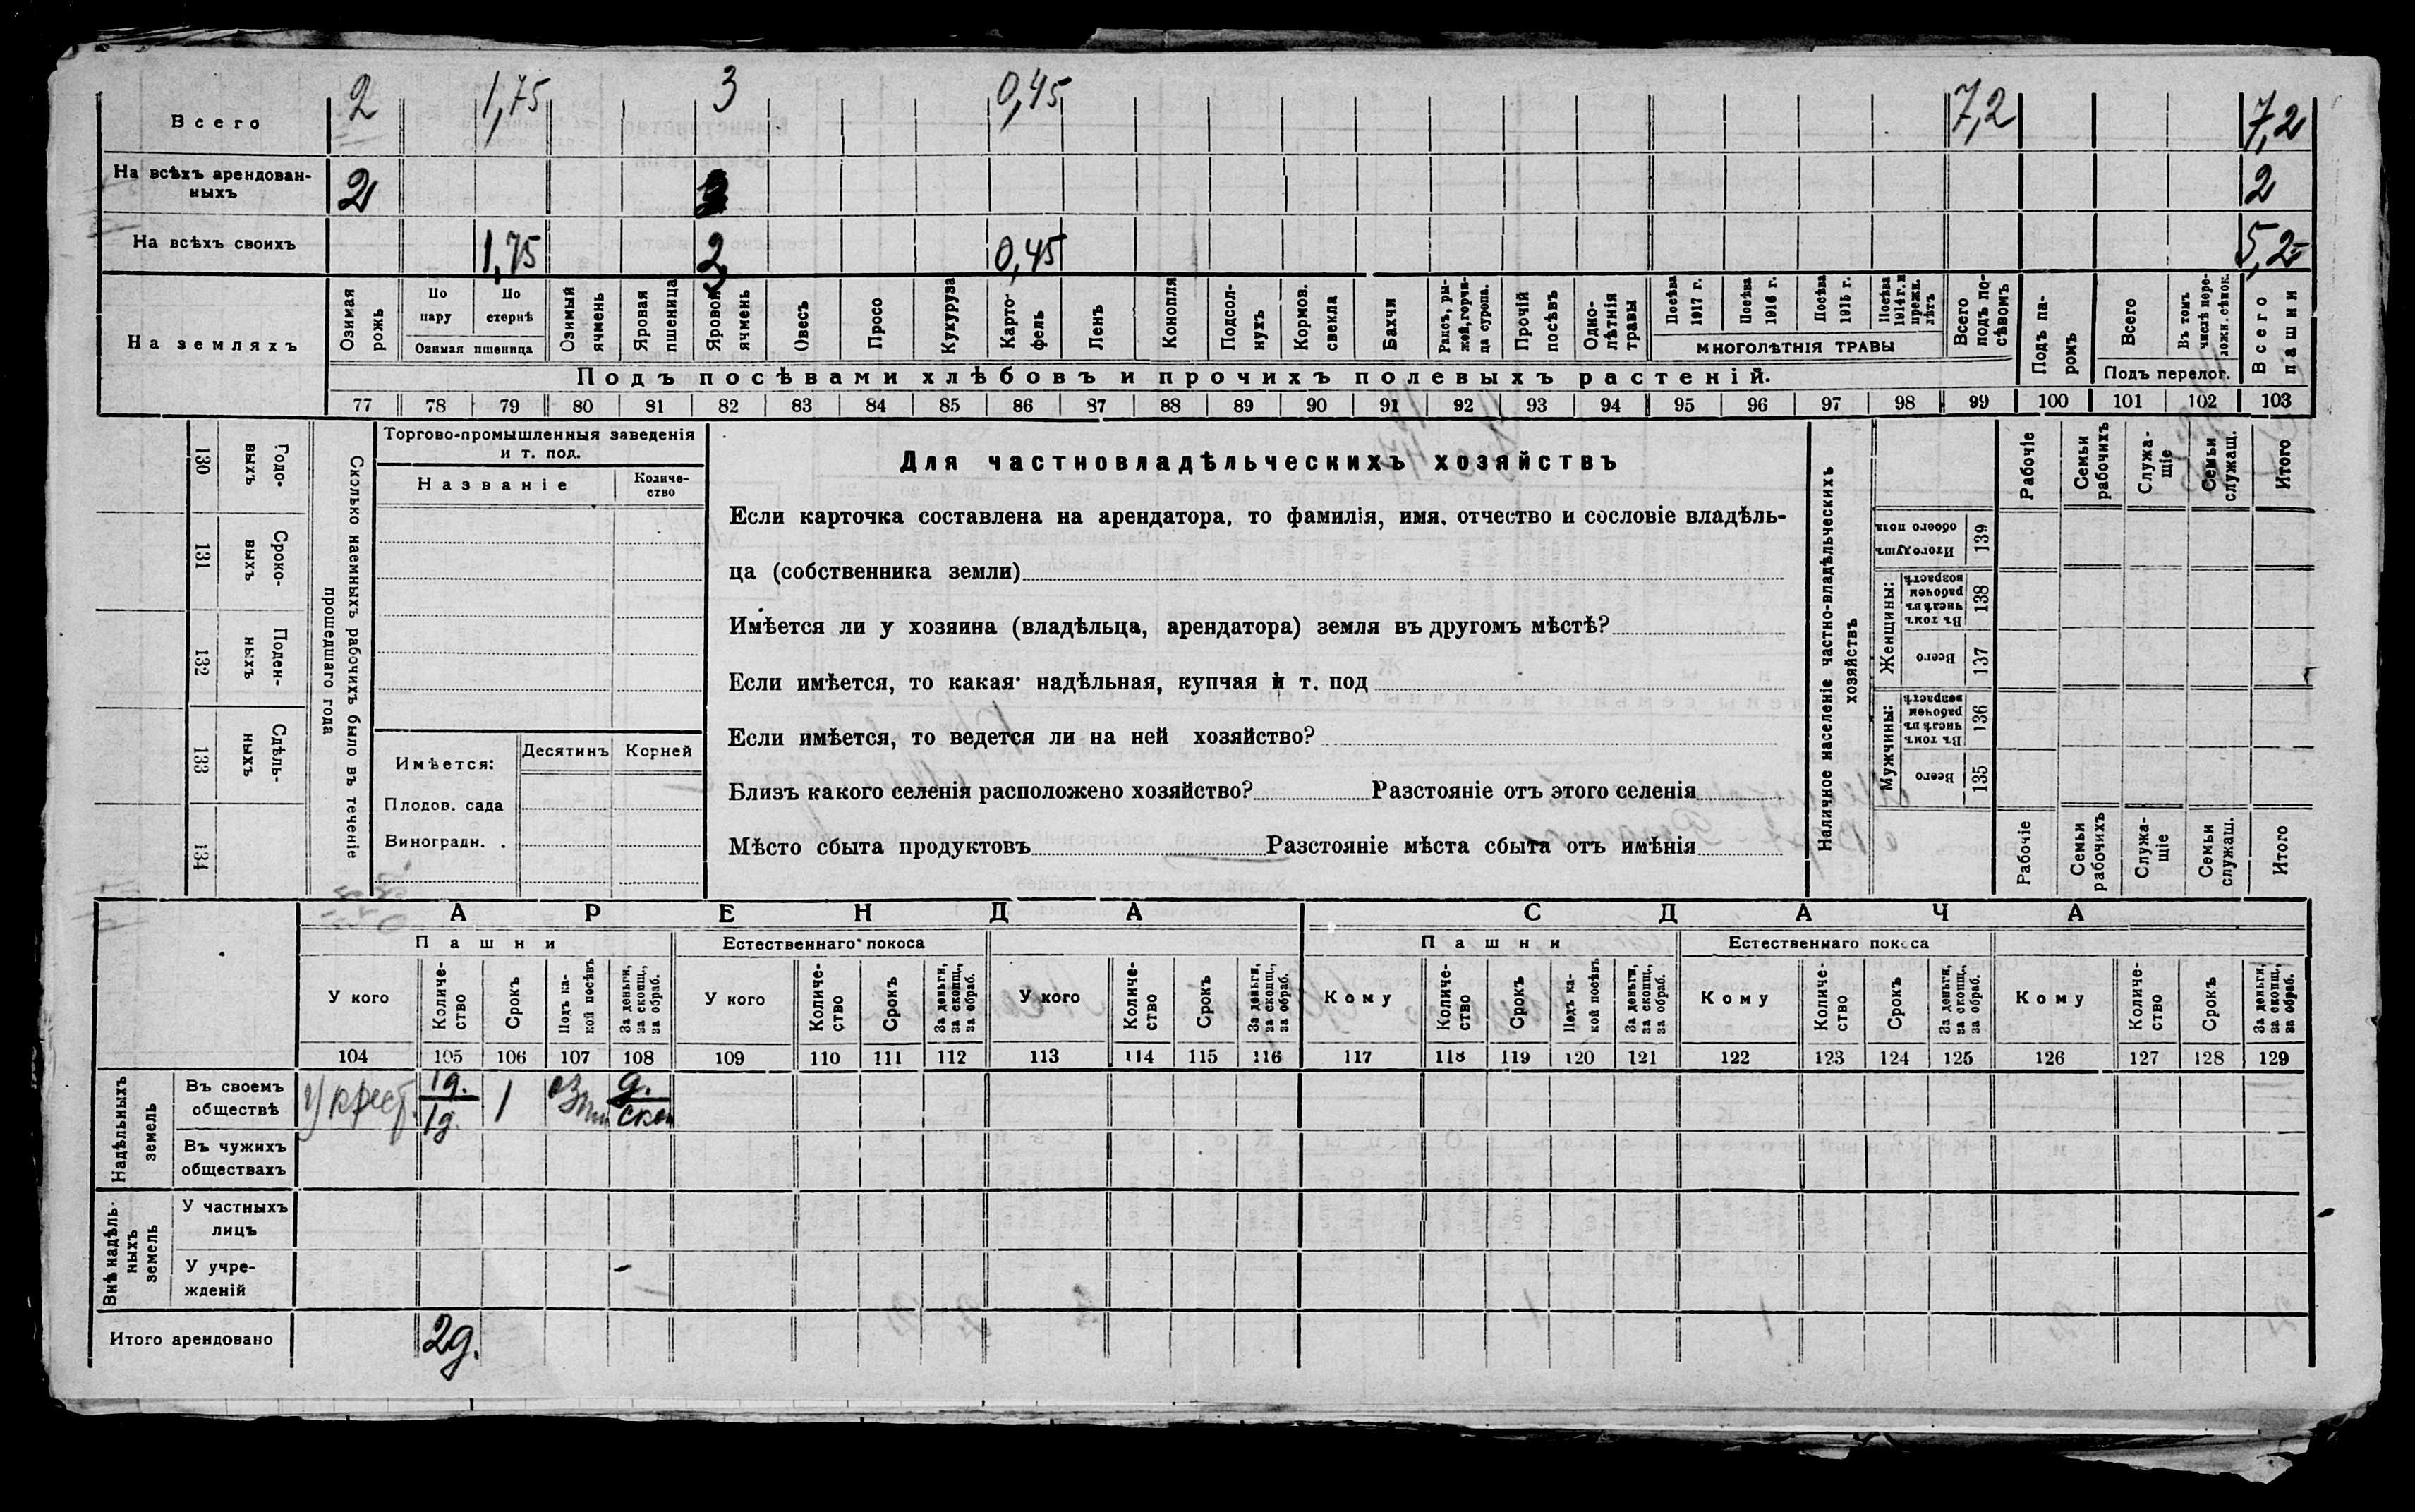 Всего 2 1,75 3 0,45 7,2 7,2
На всѣхъ арендован-
ныхъ 2 2
На всѣхъ своихъ 1,75 0,45 5,2
На земляхъ
Озимая рожь
По пару
По стернѣ
Озимая пшеница
Озимый ячмень
Яровая пшеница
Яровой ячмень
Овесъ
Просо
Кукуруза
Карто-
фель
Ленъ
Конопля
Подсол-
нухъ
Кормов. свекла
Бахчи
Рапсъ, ры-
жей, горчи-
ца сурепа.
Прочій посѣвъ
Одно-
лѣтнія травы
Посѣва 1917 г.
Посѣва 1916 г.
Посѣва 1915 г.
Посѣва 1914 г. и прежн. лѣтъ
МНОГОЛѢТНІЯ ТРАВЫ
Всего подъ по-
сѣвомъ
Подъ па-
ромъ
Всего
Въ томъ числѣ пере-
ложн. сѣнок.
Подъ перелог.
Всего пашни
Подъ посѣвами хлѣбовъ и прочихъ полевыхъ растеній.
77 78 79 80 81 82 83 84 85 86 87 88 89 90 91 92 93 94 95 96 97 98 99 100 101 102 103
130 Годо-
выхъ
131 Сроко-
выхъ
132 Поден-
ныхъ
133 Сдѣль-
ныхъ
134
Сколько наемныхъ рабочихъ было въ теченіе
прошедшаго года
Торгово-промышленныя заведенія
и т. под.
Названіе
Количе-
ство
Имѣется: Десятинъ Корней
Плодов. сада
Виноградн. .
Для частновладѣльческихъ хозяйствъ
Если карточка составлена на арендатора, то фамилія, имя. отчество и сословіе владѣль-
ца (собственника земли)
Имѣется ли у хозяина (владѣльца, арендатора) земля въ другомъ мѣстѣ?
Если имѣется, то какая надѣльная, купчая и т. под
Если имѣется, то ведется ли на ней хозяйство?
Близъ какого селенія расположено хозяйство? Разстояніе отъ этого селенія
Мѣсто сбыта продуктовъ Разстояніе мѣста сбыта отъ имѣнія
Наличное населеніе частно-владѣльческихъ
хозяйствъ
Рабочіе
Семьи рабочихъ
Служа-
щіе
Семьи служащ.
Итого
Итого душъ обоего пола 139
Женщины:
Въ томъ числѣ въ рабочем возрастѣ 138
Всего 137
Мужчины:
Въ томъ числѣ въ рабочем возрастѣ 136
Всего 135
Рабочіе
Семьи рабочихъ
Служа-
щіе
Семьи служащ.
Итого
АРЕНДА СДАЧА
Пашни Естественнаго покоса Пашни Естественнаго покоса
У кого
Количе-
ство
Срокъ
Подъ ка-
кой посѣвъ
За деньги, за скопщ., за обраб.
У кого
Количе-
ство
Срокъ
За деньги, за скопщ., за обраб.
У кого
Количе-
ство
Срокъ
За деньги, за скопщ., за обраб.
Кому
Количе-
ство
Срокъ
Подъ ка-
кой посѣвъ
За деньги, за скопщ., за обраб.
Кому
Количе-
ство
Срокъ
За деньги, за скопщ., за обраб.
Кому
Количе-
ство
Срокъ
За деньги, за скопщ., за обраб.
104 105 106 107 108 109 110 111 112 113 114 115 116 117 118 119 120 121 122 123 124 125 126 127 128 129
Надѣльныхъ земель
Въ своемъ
обществѣ
У крест. 1д. 1 д.
1д.
Въ чужихъ
обществахъ
Внѣ надѣль-
ныхъ земель
У частныхъ
лицъ
У учре-
жденій
Итого арендовано 2д.